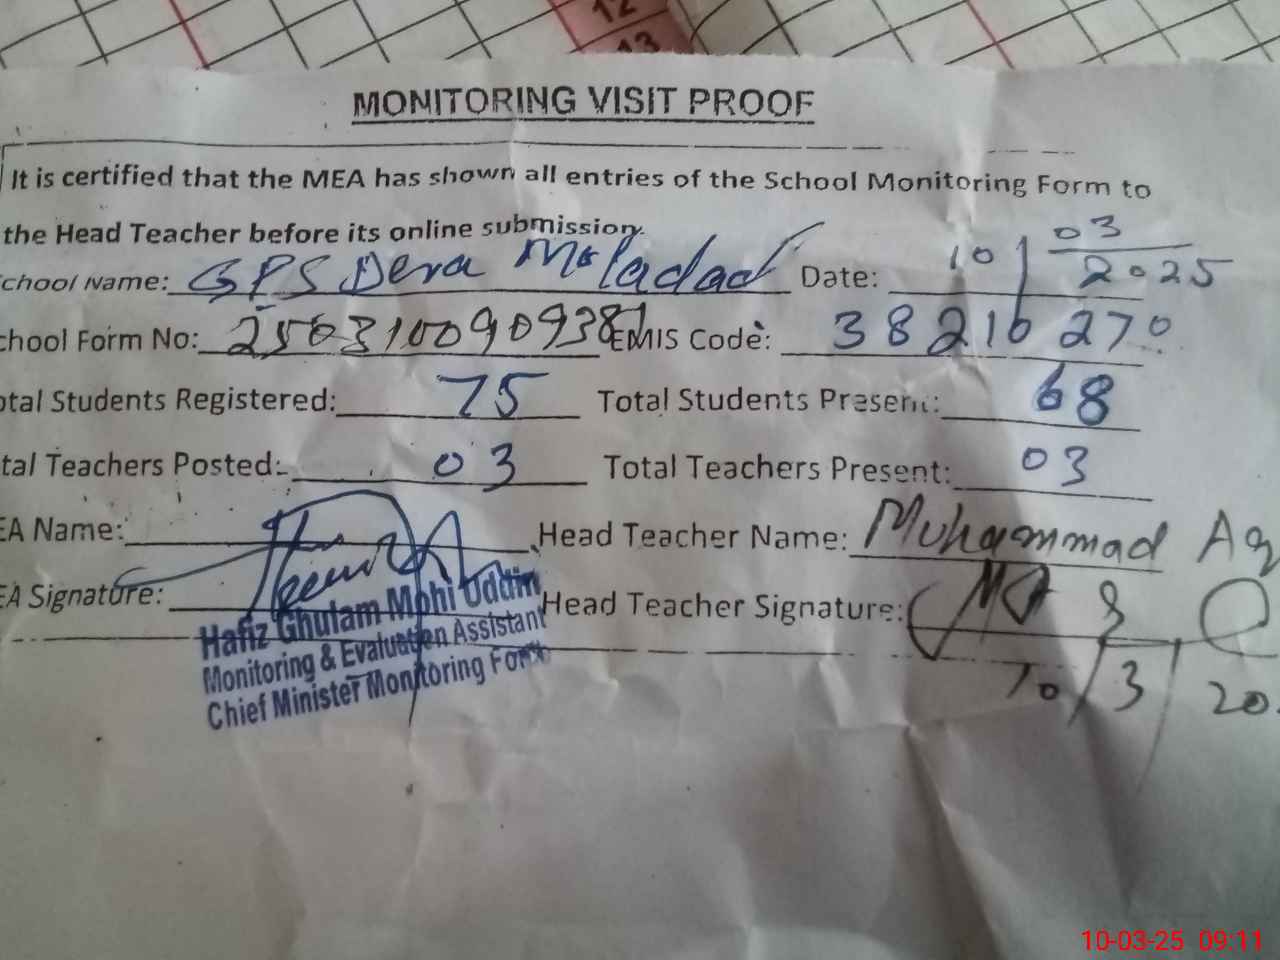 12
13
MONITORING VISIT PROOF
It is certified that the MEA has shown all entries of the School Monitoring Form to
the Head Teacher before its online submission.
chool Name: GPS Dera Moladad Date: 10/03/2025
chool Form No: 2503100909381 EMIS Code: 38210270
otal Students Registered: 75 Total Students Present: 68
tal Teachers Posted: 03 Total Teachers Present: 03
EA Name: Head Teacher Name: Muhammad
EA Signature: Head Teacher Signature:
Hafiz Ghulam Mohi Uddin
Monitoring & Evaluation Assistant
Chief Minister Monitoring Force
10/3/20
10-03-25 09:11